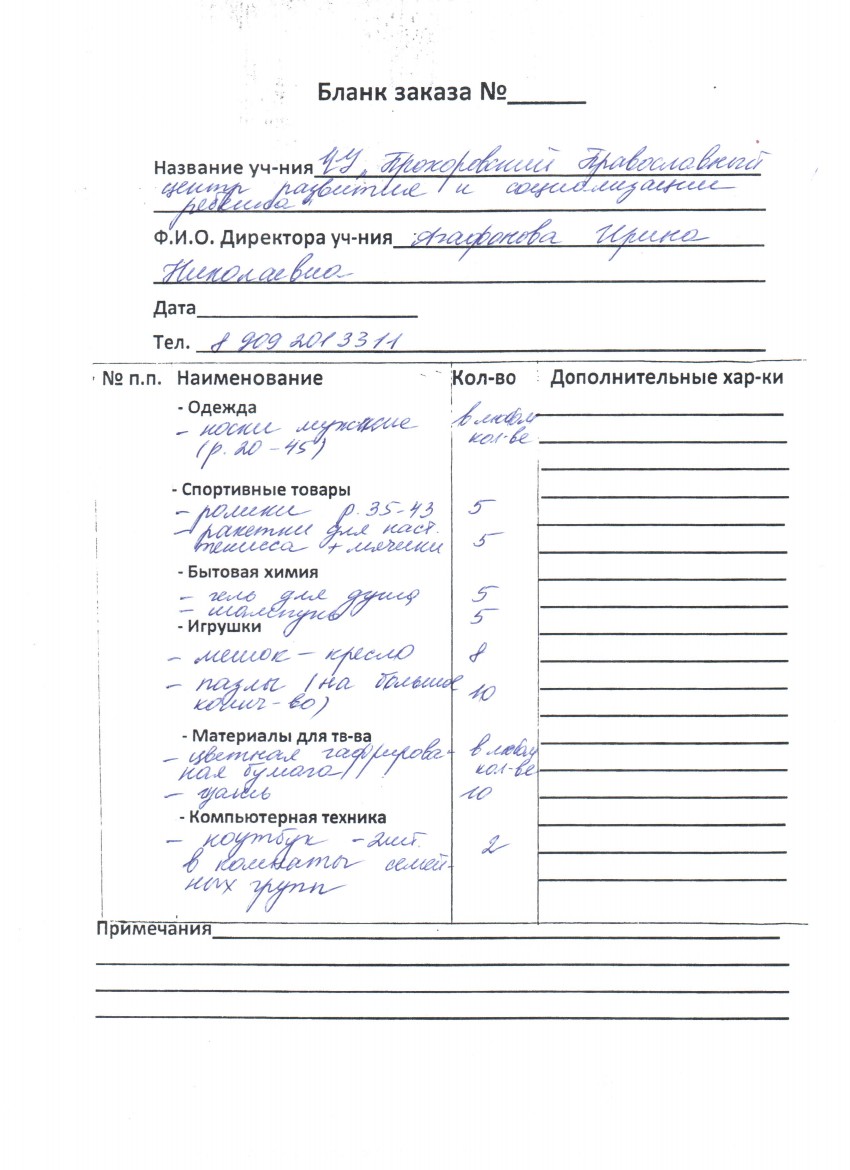 Бланк заказа №______
Название уч-ния ЧУ "Прохоровский Православный
центр развития и социализации
ребенка"
Ф.И.О. Директора уч-ния Агафонова Ирина
Николаевна
Дата
Тел. 8 909 201 33 11
№ п.п. Наименование Кол-во Дополнительные хар-ки
- Одежда
- носки мужские в любом
(р. 20-45) кол-ве
- Спортивные товары
- ролики р. 35-43 5
- ракетки для наст.
тенисса + мячики 5
- Бытовая химия
- гель для душа 5
- шампунь 5
- Игрушки
- мешок - кресло 8
- пазлы (на большое
колич-во) 10
- Материалы для тв-ва
- цветная гафрирова- в любом
ная бумага кол-ве
- 10
- Компьютерная техника
- ноутбук - 2шт. 2
в комнаты семей-
ных групп
Примечания